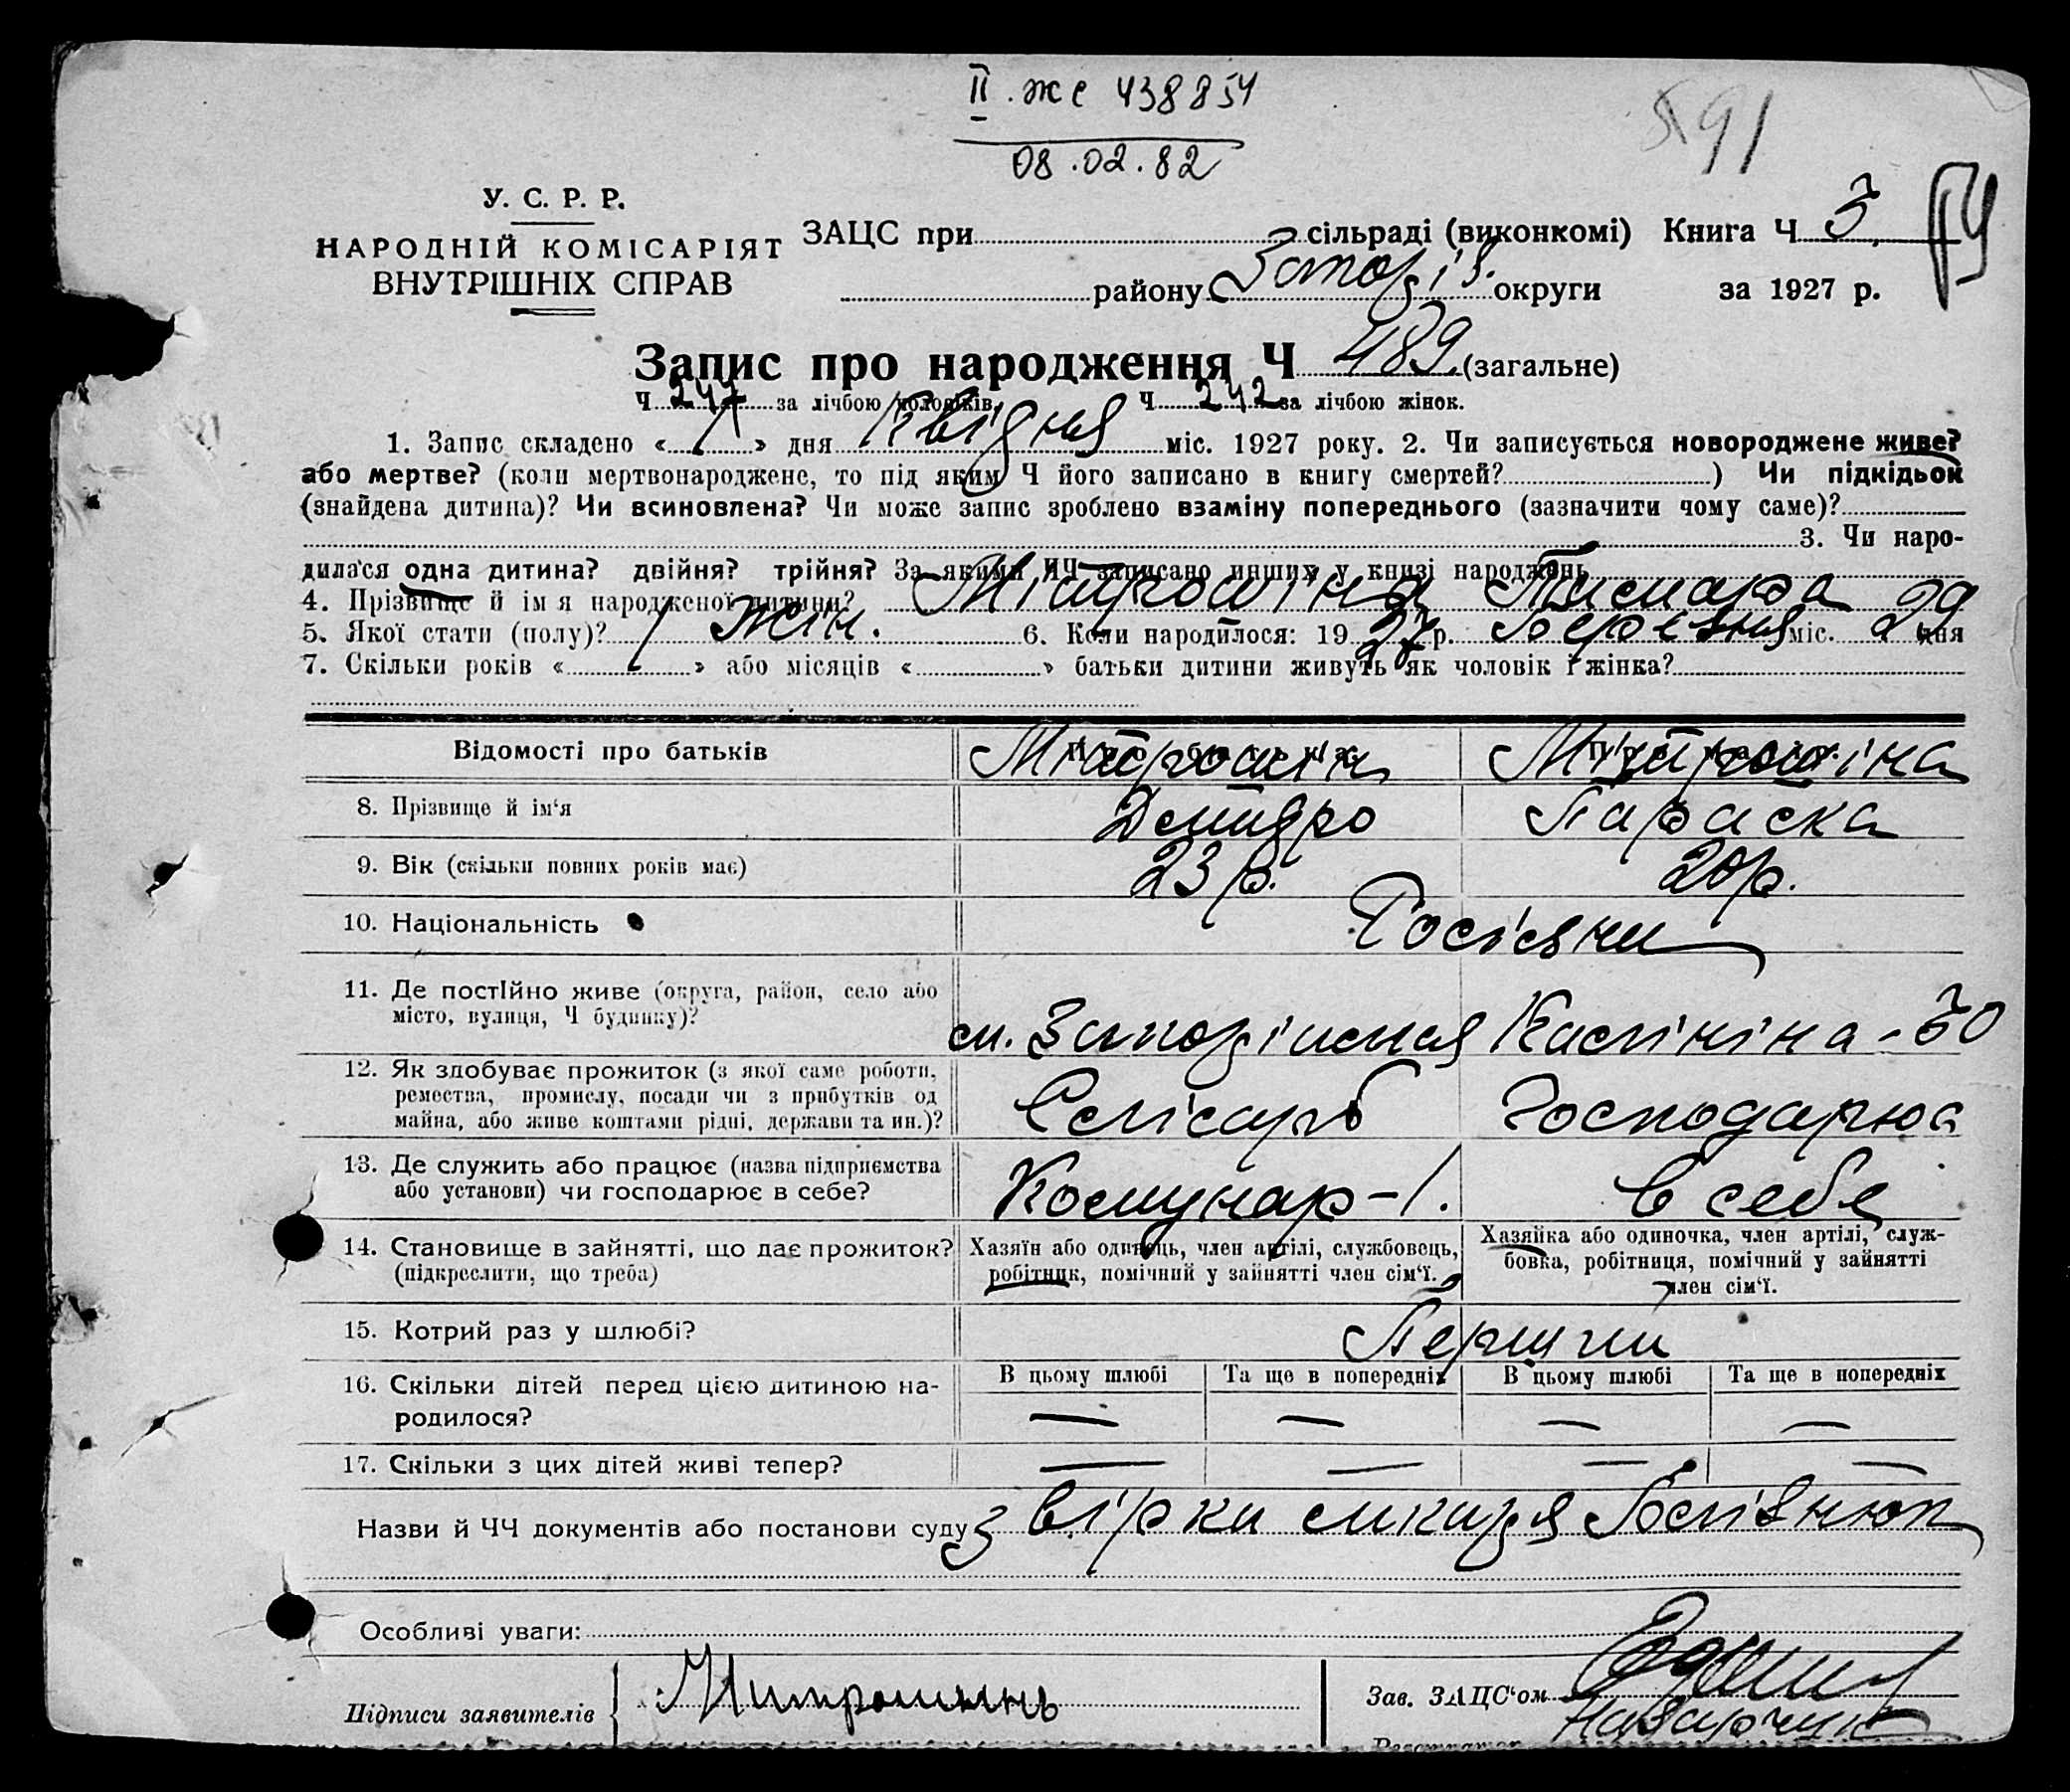 II. жс 438854
08.02.82
591
У. С. Р. Р.
НАРОДНІЙ КОМІСАРІЯТ
ВНУТРІШНІХ СПРАВ
ЗАЦС при сільраді (виконкомі) Книга Ч 3.
району Запоріз. округи за 1927 р.
Запис про народження Ч 489. (загальне)
Ч 247 за лічбою чоловіків, Ч 242 за лічбою жінок.
1. Запис складено « 1 » дня Квітня міс. 1927 року. 2. Чи записується новороджене живе?
або мертве? (коли мертвонароджене, то під яким Ч його записано в книгу смертей? ) Чи підкідьок
(знайдена дитина)? Чи всиновлена? Чи може запис зроблено взаміну попереднього (зазначити чому саме)?
3. Чи наро-
дилася одна дитина? двійня? трійня? За якими ЧЧ записано инших у книзі народжень
4. Прізвище й ім я народженої дитини? Мітрошіна Тамара
5. Якої стати (полу)? жін. 6. Коли народилося: 19 27 р. Березня міс. 29 дня
7. Скільки років « 1 » або місяців « » батьки дитини живуть як чоловік і жінка?
Відомості про батьків Мітрошін Мітрошіна
8. Прізвище й ім'я Дмитро Параска
9. Вік (скільки повних років має) 23 р. 20 р.
10. Національність Росіяни
11. Де постійно живе (округа, район, село або
місто, вулиця, Ч будинку)? м. Запоріжжя Калініна - 30
12. Як здобуває прожиток (з якої саме роботи,
ремества, промислу, посади чи з прибутків од
майна, або живе коштами рідні, держави та ин.)? Слюсарь Господарює
13. Де служить або працює (назва підприємства
або установи) чи господарює в себе? Комунар - 1. в себе
14. Становище в зайнятті, що дає прожиток?
(підкреслити, що треба)
Хазяїн або одинець, член артілі, службовець,
робітник, помічний у зайнятті член сім'ї.
Хазяйка або одиночка, член артілі, служ-
бовка, робітниця, помічний у зайнятті
член сім'ї.
15. Котрий раз у шлюбі? Перший
16. Скільки дітей перед цією дитиною на-
родилося?
В цьому шлюбі Та ще в попередніх В цьому шлюбі Та ще в попередніх
— — — —
17. Скільки з цих дітей живі тепер? — — — —
Назви й ЧЧ документів або постанови суду
Особливі уваги:
Підписи заявителів Митрошинъ
Зав. ЗАЦС'ом